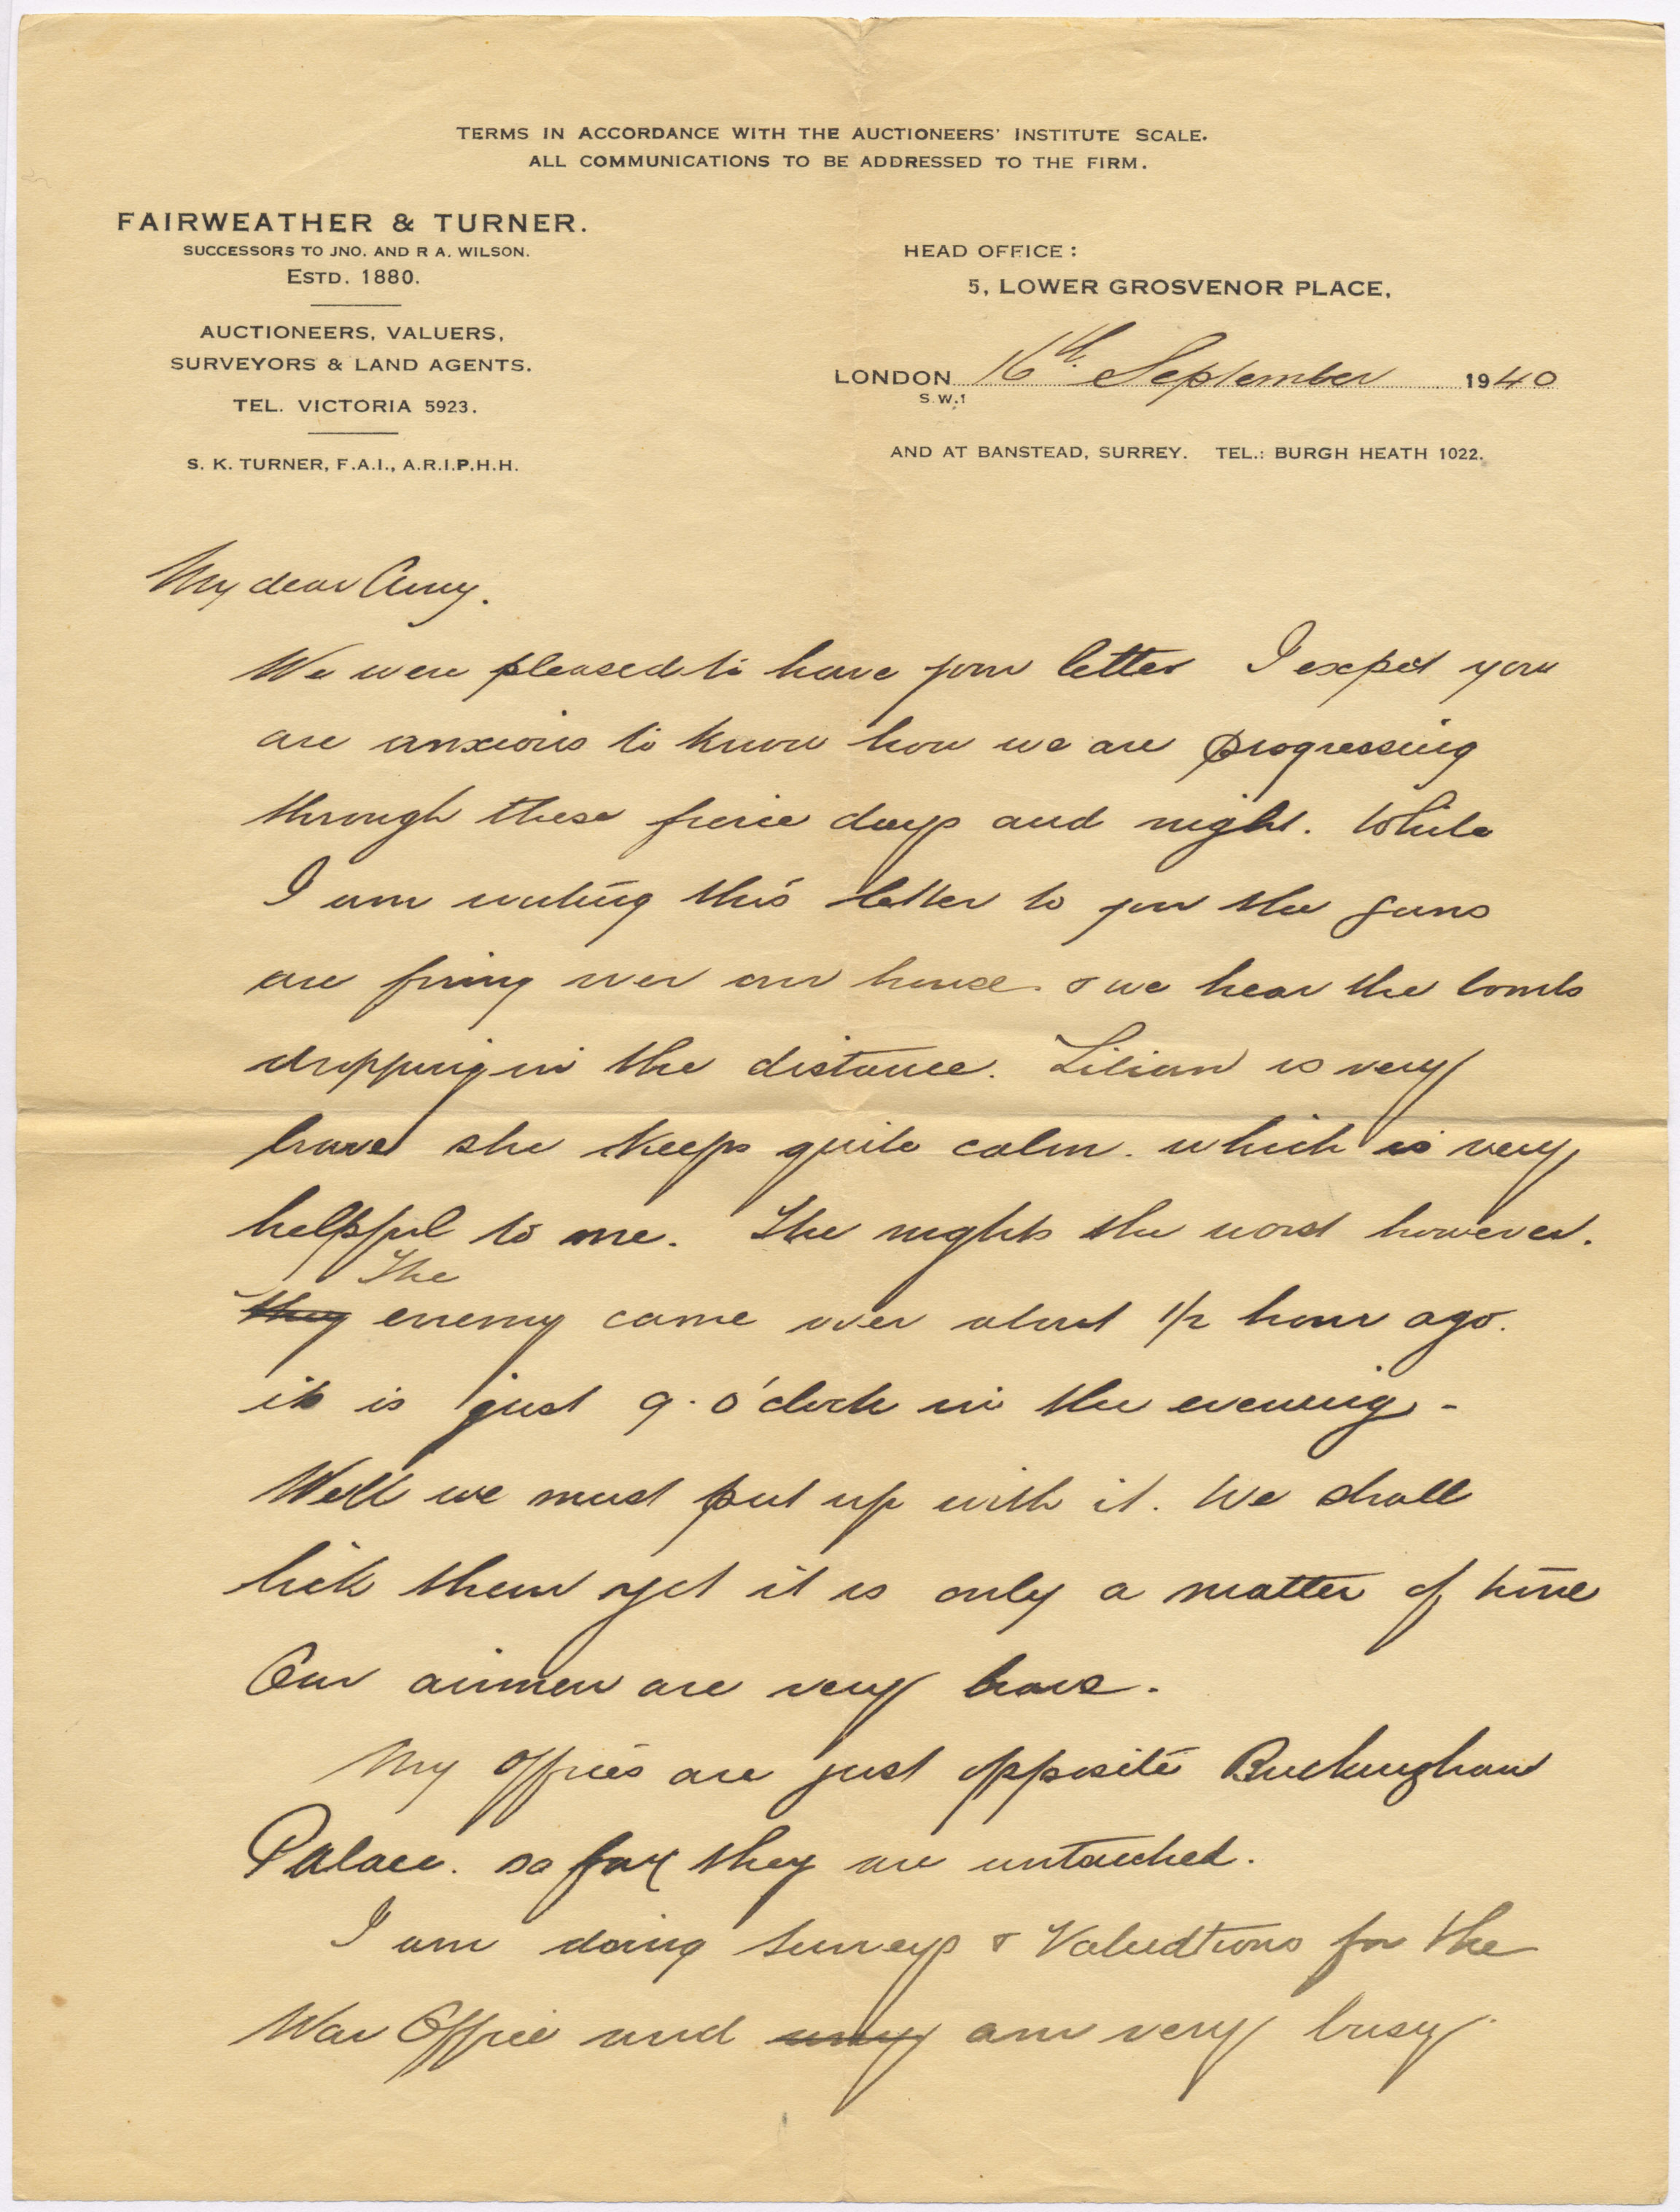 TERMS IN ACCORDANCE WITH THE AUCTIONEERS' INSTITUTE SCALE.
ALL COMMUNICATIONS TO BE ADDRESSED TO THE FIRM.
FAIRWEATHER & TURNER.
SUCCESSORS TO JNO. AND R A. WILSON.
ESTD. 1880.
AUCTIONEERS, VALUERS,
SURVEYORS & LAND AGENTS.
TEL. VICTORIA 5923.
S. K. TURNER, F.A.I., A.R.I.P.H.H.
HEAD OFFICE:
5, LOWER GROSVENOR PLACE,
LONDON 16th September 1940
S.W.1
AND AT BANSTEAD, SURREY. TEL.: BURGH HEATH 1022.
My dear Amy.
We were pleased to have your letter I expect you
are anxious to know how we are progressing
through these fierce days and night. While
I am writing this letter to you the guns
are firing over our house. & we hear the bombs
dropping in the distance. Lilian is very
brave she keeps quite calm. which is very
helpful to me. The nights the worst however.
The
they enemy came over about 1/2 hour ago.
it is just 9. o'clock in the evening -
Well we must put up with it. We shall
lick them yet it is only a matter of time
Our airmen are very brave.
My offices are just opposite Buckingham
Palace. so far they are untouched.
I am doing surveys & Valuations for the
War Office and my am very busy.